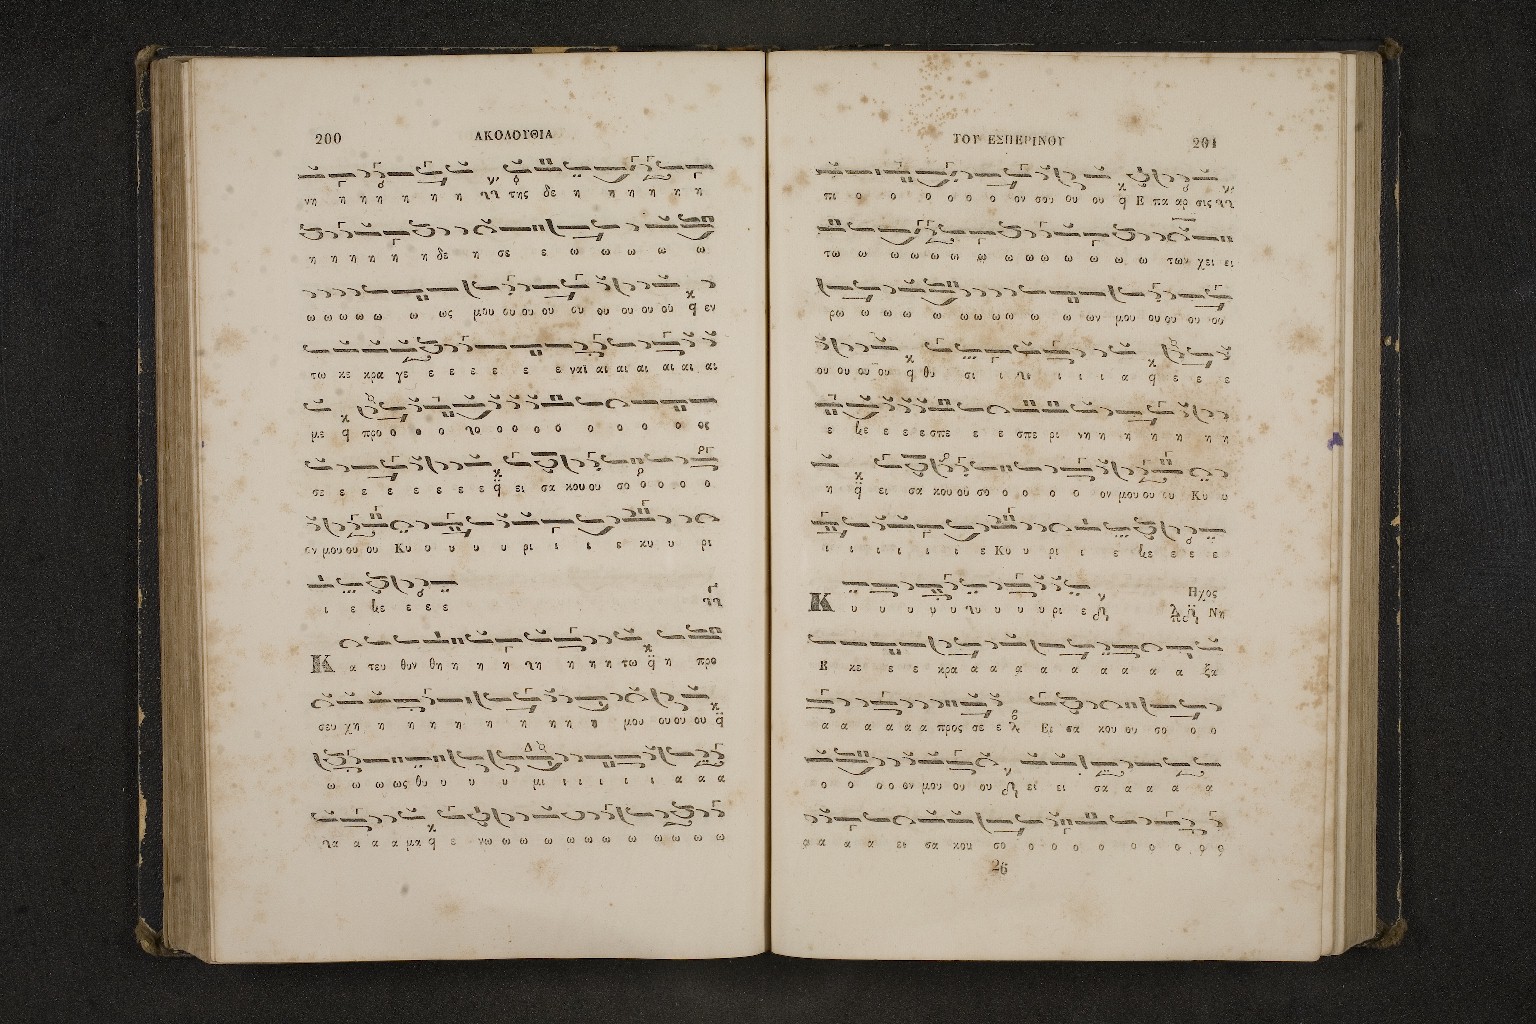 200 ΑΚΟΛΟΥΘΙΑ
νη η η η η η η της δε η η η η η η
η η η η η η δε η σε ε ω ω ω ω ω
ω ω ω ω ω ω ως μου ου ου ου ου ου ου ου οὐ εν
τω κε κρα γε ε ε ε ε ε ε ναι αι αι αι αι αι αι
με προ ο ο ο ο ο ο ο ο ο ο ο ο ος
σε ε ε ε ε ε ε ε ει σα κου ου σο ο ο ο ο
ον μου ου ου Κυ υ υ υ υ ρι ι ι ε κυ υ ρι
ι ε ε ε ε
Κ α τευ θυν θη η η η η η η τω η προ
σευ χη η η η η η η η μου ου ου ου
ω ω ω ως θυ υ υ υ μι ι ι ι ι ι α α α
α α α μα ε νω ω ω ω ω ω ω ω ω ω ω
ΤΟΥ ΕΣΠΕΡΙΝΟΥ 201
πι ο ο ο ο ο ο ον σου ου ου Ε πα αρ σις
τω ω ω ω ω ω ω ω ω ω ω ω ω των χει ει
ρω ω ω ω ω ω ω ω ω ω ω ων μου ου ου ου ου
ου ου ου ου θυ σι ι ι ι ι α ε ε ε
ε ε ε ε σπε ε ε σπε ρι νη η η η η η η
η ει σα κου ου σο ο ο ο ο ον μου ου ου Κυ υ
ι ι ι ι ι ι ε Κυ υ ρι ι ε ε ε ε
Κ υ υ υ υ υ υ υ υ ρι ε Ηχος Νη
Ε κε ε ε κρα α α α α α α α α α α ξα
α α α α α α προς σε ε Ει σα κου ου σο ο ο
ο ο ο ο ον μου ου ου ει ει σα α α α α
α α α α ει σα κου σο ο ο ο ο ο ο ο ο ο
26